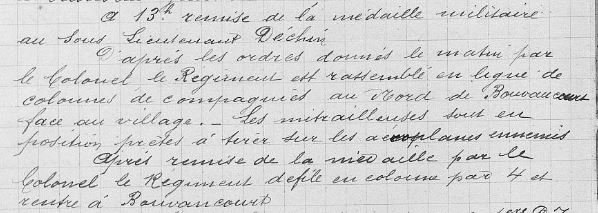 A 13h remise de la médaille militaire
au Sous Lieutenant Déchin
D'après les ordres donnés le matin par
le Colonel le Régiment est rassemblé en ligne de
colonnes de compagnies au Nord de Bouvancourt
face au village. _ Les mitrailleuses sont en
position prêtes à tirer sur les aeroplanes ennemis
Après remise de la médaille par le
Colonel le Régiment défile en colonne par 4 et
rentre à Bouvancourt